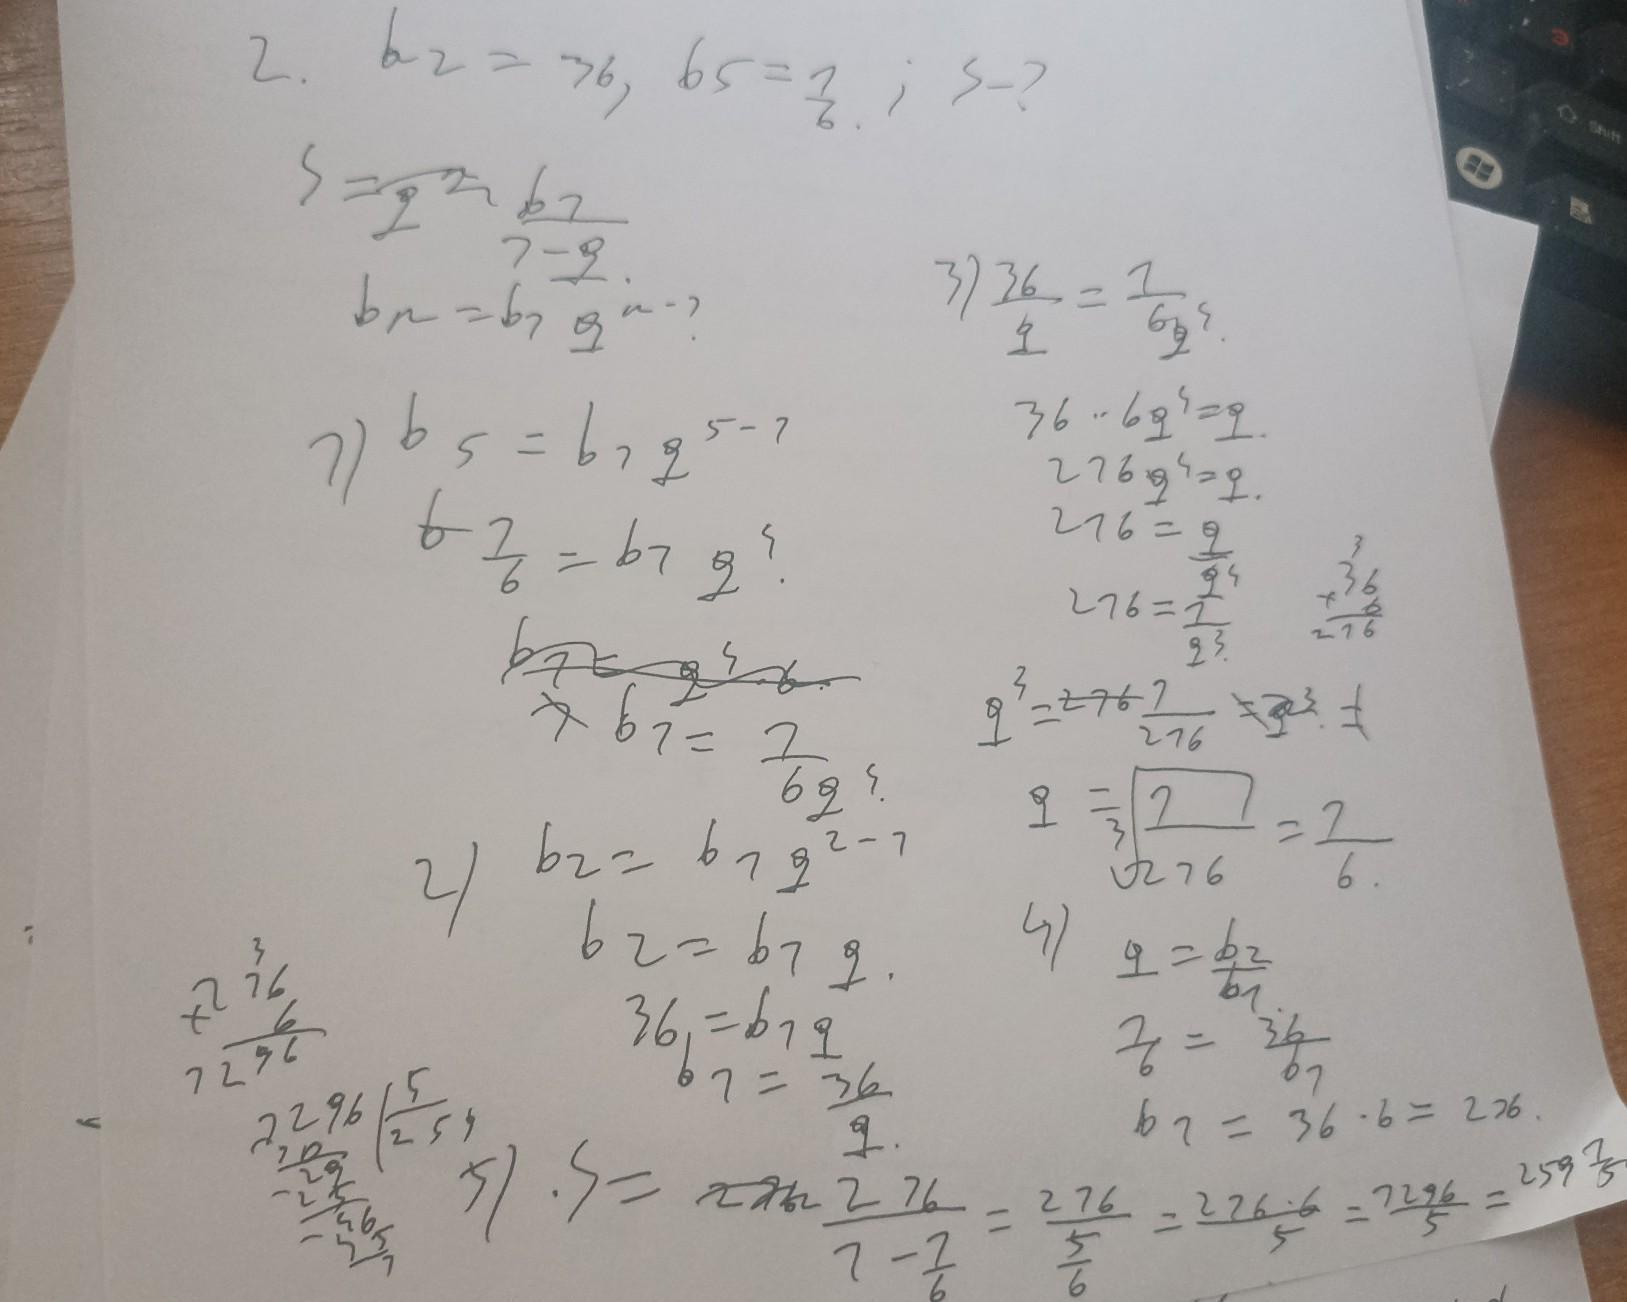 2. b2 = 36, b5 = 1/6. ; S-?
S = b1/(1-q).
bn = b1 q^n-1
1) b5 = b1 q^5-1
1/6 = b1 q^4.
b1 = 1/(6q^4).
2) b2 = b1 q^2-1
b2 = b1 q.
36 = b1 q
b1 = 36/q.
3) 36/q = 1/(6q^4).
36 · 6q^4 = q.
216 q^4 = q.
216 = q/q^4
216 = 1/q^3.
3
36
× 6
216
q^3 = 1/216
q = ∛(1/216) = 1/6.
4) q = b2/b1.
1/6 = 36/b1
b1 = 36 · 6 = 216.
5) S = 216/(1 - 1/6) = 216/(5/6) = 216·6/5 = 1296/5 = 259 1/5
3
216
× 6
1296
1296 | 5
10 259
29
- 25
46
- 45
1
Shift